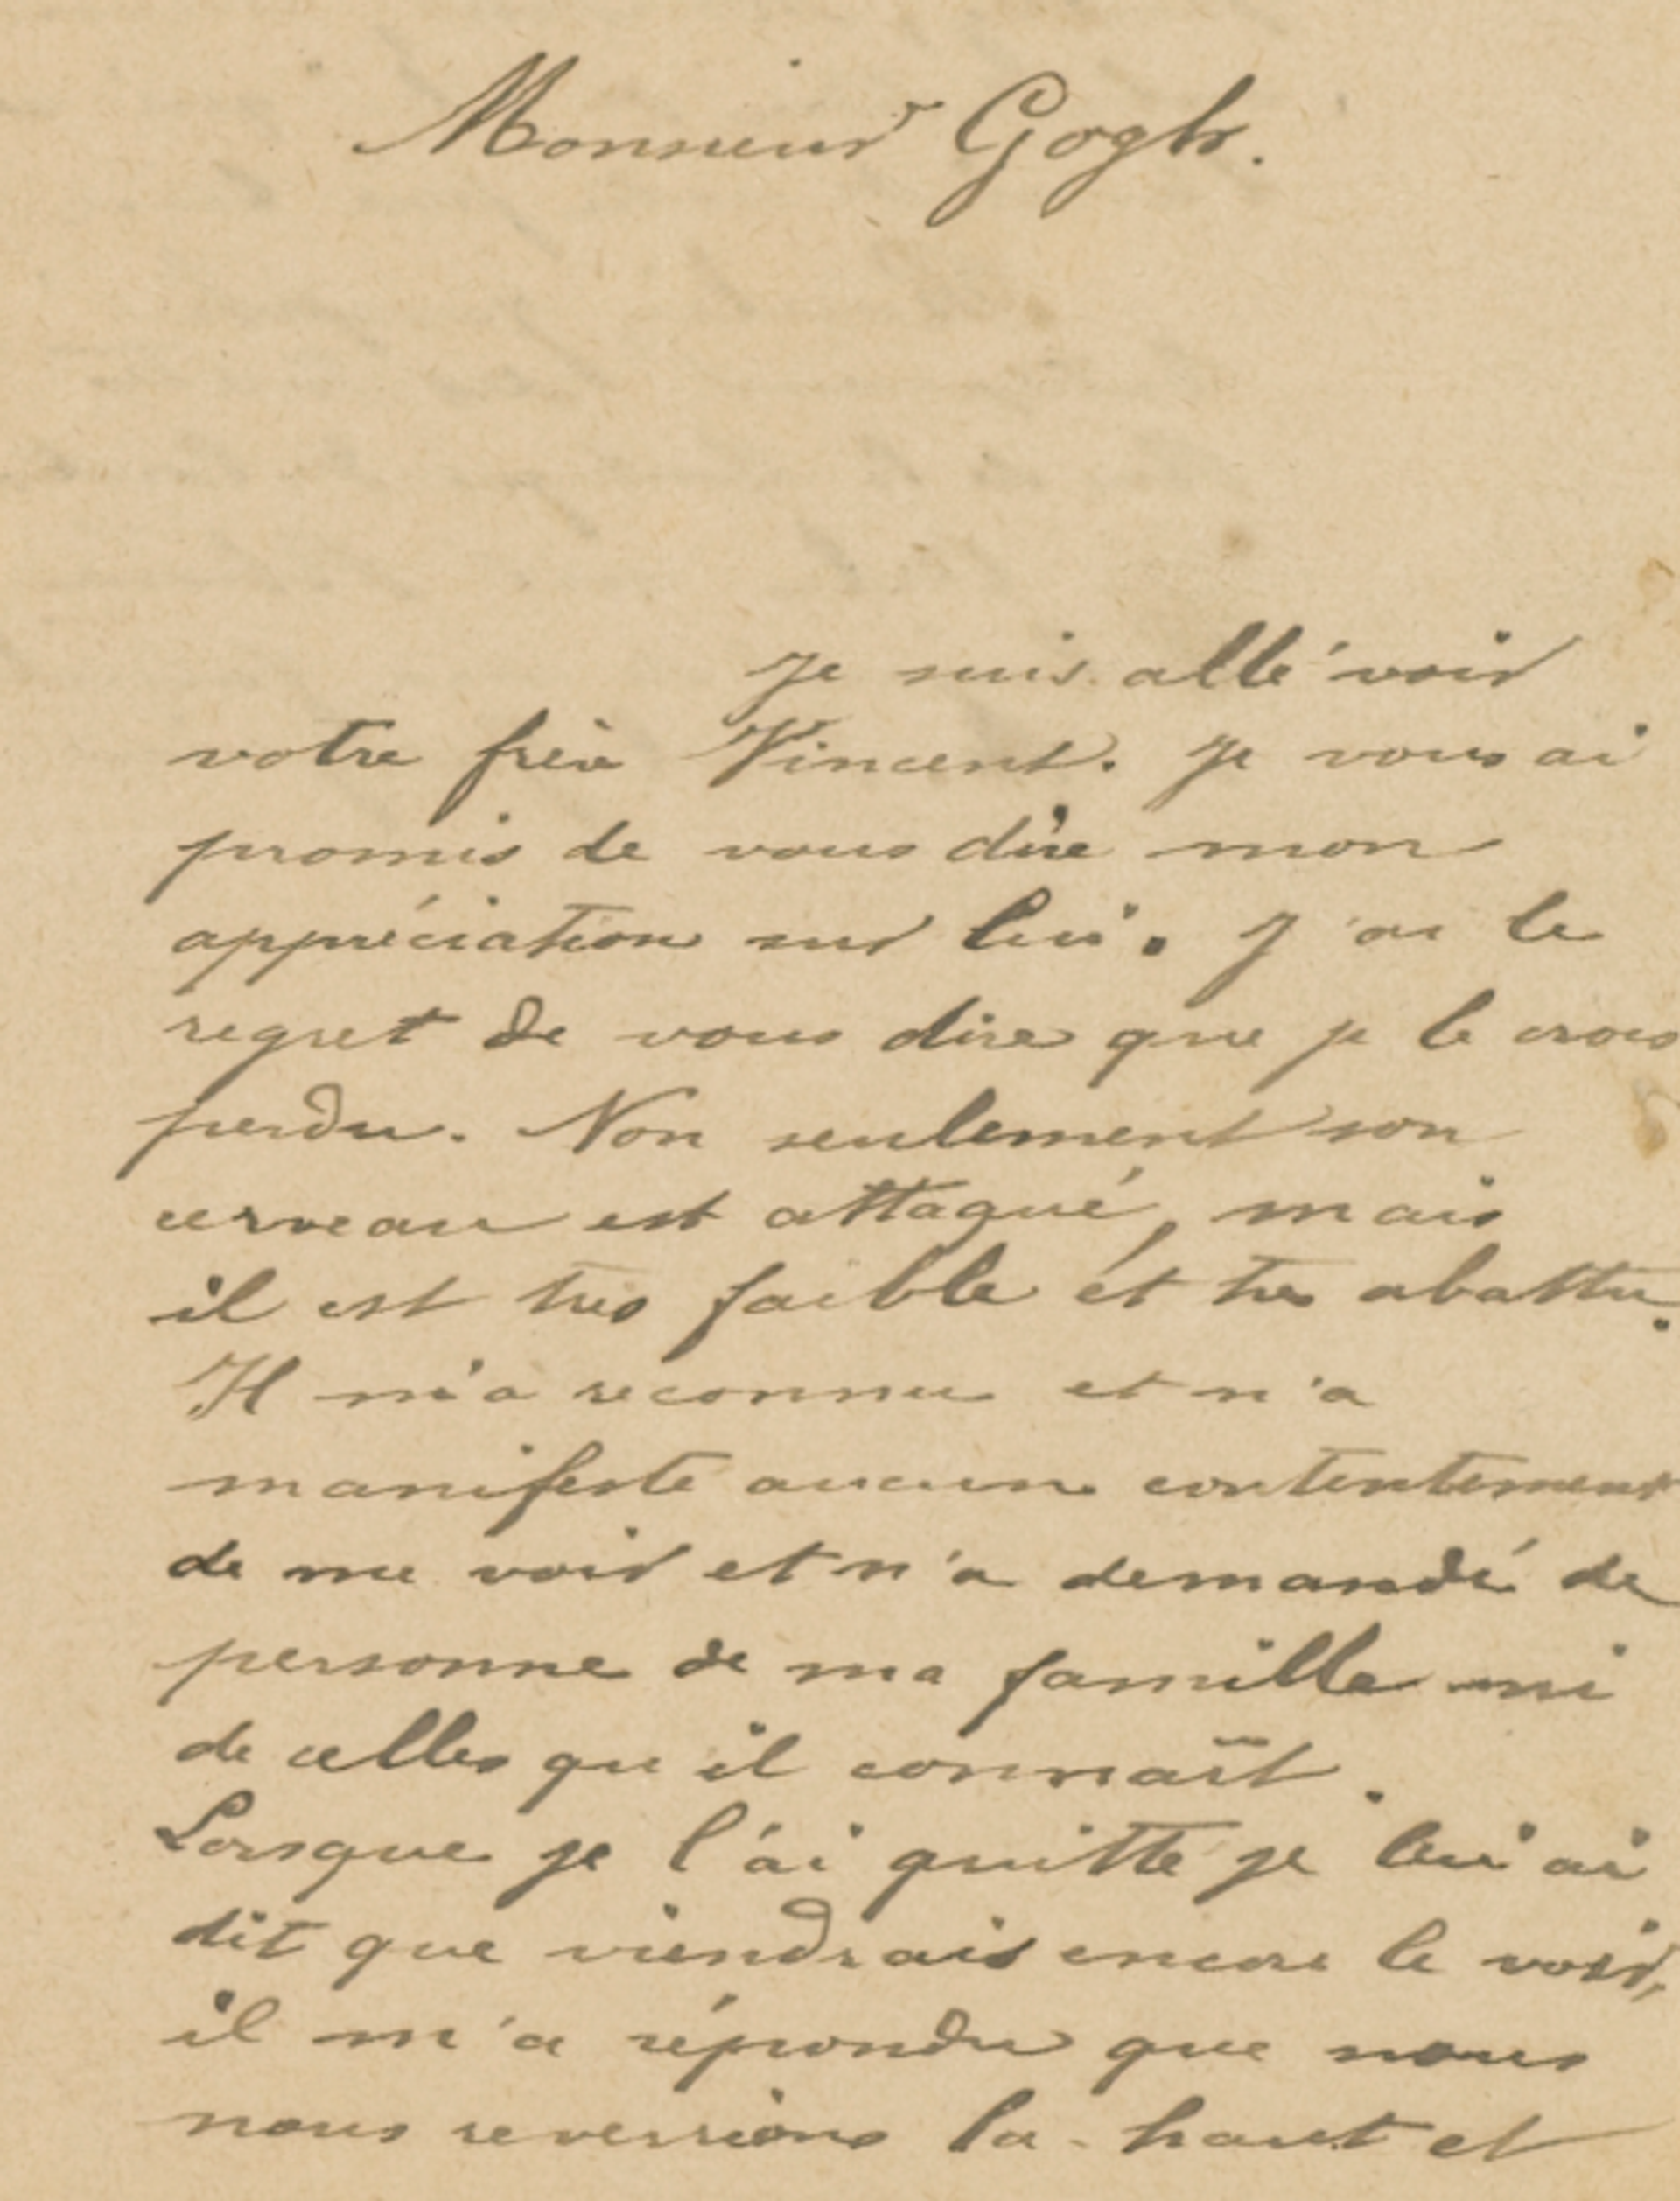 Monsieur Gogh.
Je suis allé voir
votre frère Vincent. Je vous ai
promis de vous dire mon
appréciation sur lui. J'ai le
regret de vous dire que je le crois
perdu. Non seulement son
cerveau est attaqué, mais
il est très faible et très abattu.
Il m'a reconnu et n'a
manifesté aucun contentement
de me voir et n'a demandé de
personne de ma famille ni
de celles qu'il connaît.
Lorsque je l'ai quitté je lui ai
dit que viendrais encore le voir,
il m'a répondu que nous
nous reverrions la-haut et